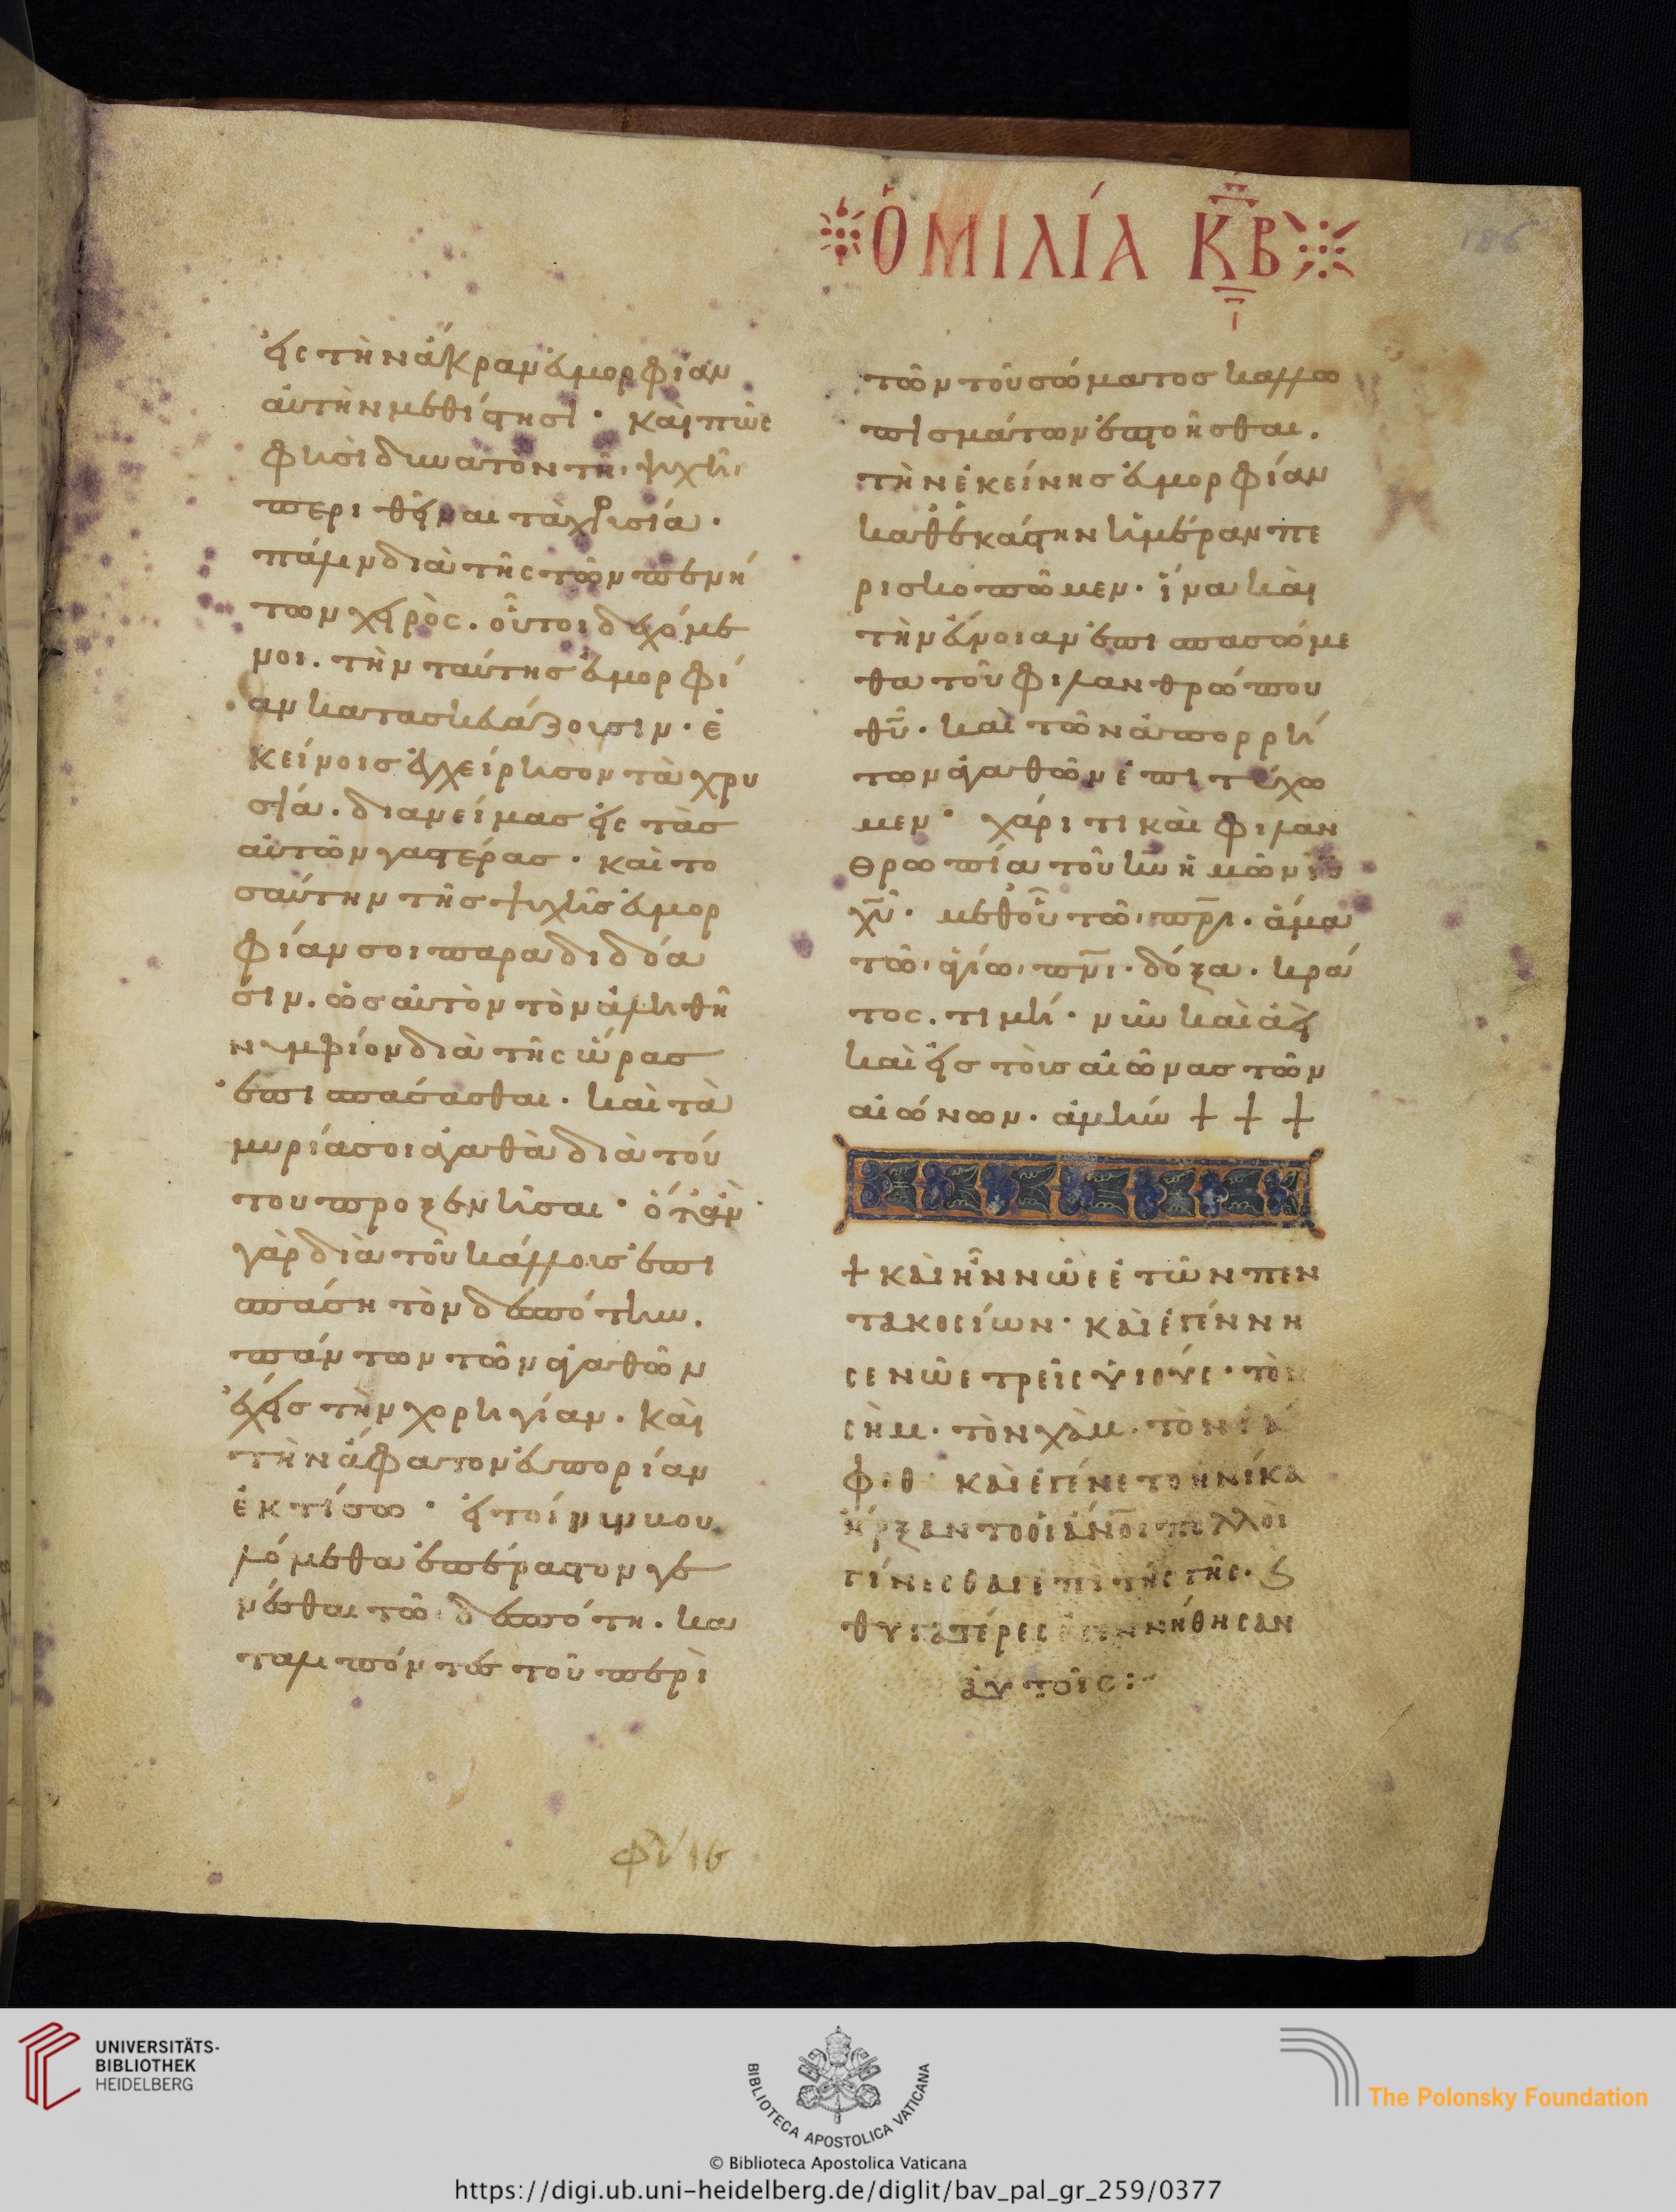 ὉΜΙΛΊΑ ΚΒ
186
εἰς τὴν ἄκραν εὐμορφίαν
αὐτὴν μεθίστησι· καὶ πῶς
φησὶ δυνατὸν τῆ ψυχῆ
περιθεῖναι τὰ χρυσία·
πάλιν διὰ τῆς τῶν πενή
των χειρὸς. οὗτοι δεχόμε
νοι. τὴν ταύτης εὐμορφί
αν κατασκευάζουσιν· ἐ
κείνοις ἐγχείρησον τὰ χρυ
σία. διανείμας εἰς τὰς
αὐτῶν γαστέρας· καὶ το
σαύτην τῆς ψυχῆς εὐμορ
φίαν σοι παραδιδόα
σιν. ὡς αὐτὸν τὸν ἀληθῆ
νυμφίον διὰ τῆς ὥρας
ἐπισπάσασθαι. καὶ τὰ
μυρία σοι ἀγαθὰ διὰ τού
του προξενῆσαι· ὅτἂν
γὰρ διὰ τοῦ κάλλους ἐπι
σπάση τὸν δεσπότην.
πάντων τῶν ἀγαθῶν
ἔχεις τὴν χορηγίαν. καὶ
τὴν ἄφατον εὐπορίαν
ἐκτίσω· εἰ τοίνυν βου
λόμεθα ἐπέραστον γε
νέσθαι τῶ δεσπότη. κα
ταλιπόντες τοῦ περὶ
τῶν τοῦ σώματος καλλω
πισμάτων ἐπτοῆσθαι.
τὴν ἐκείνης εὐμορφίαν
καθ' ἑκάστην ἡμέραν πε
ρισκοπῶμεν· ἵνα καὶ
τὴν εὔνοιαν ἐπισπασώμε
θα τοῦ φιλανθρώπου
θῦ· καὶ τῶν ἀπορρή
των ἀγαθῶν ἐπιτύχω
μεν· χάριτι καὶ φιλαν
θρωπία τοῦ κυ ἡμῶν ιυ
χῦ· μεθ' οὗ τῶ πρι· ἅμα
τῶ ἁγίω πνι· δόξα. κρά
τος. τιμή· νῦν καὶ ἀεὶ
καὶ εἰς τοὺς αἰῶνας τῶν
αἰώνων. ἀμήν + + +
+ ΚΑῚ ἮΝ ΝῶΕ ἘΤῶΝ ΠΕΝ
ΤΑΚΟΣΊΩΝ· ΚΑῚ ἘΓΈΝΝΗ
ΣΕ ΝῶΕ ΤΡΕῖΣ ΥἹΟΎΣ· ΤῸΝ
ΣῊΜ· ΤῸΝ ΧᾺΜ· ΤῸΝ ἸΆ
ΦΕΘ· ΚΑῚ ἘΓΈΝΕΤΟ ἩΝΊΚΑ
ἬΡΞΑΝΤΟ ΟἹ ἌΝΟΙ ΠΟΛΛΟῚ
ΓΊΝΕΣΘΑΙ ἘΠῚ ΤῆΣ ΓῆΣ· Ϛ
ΘΥΓΑΤΈΡΕΣ ἘΓΕΝΝΉΘΗΣΑΝ
ΑὐΤΟῖΣ:
UNIVERSITÄTS-
BIBLIOTHEK
HEIDELBERG
BIBLIOTECA APOSTOLICA VATICANA
The Polonsky Foundation
© Biblioteca Apostolica Vaticana
https://digi.ub.uni-heidelberg.de/diglit/bav_pal_gr_259/0377